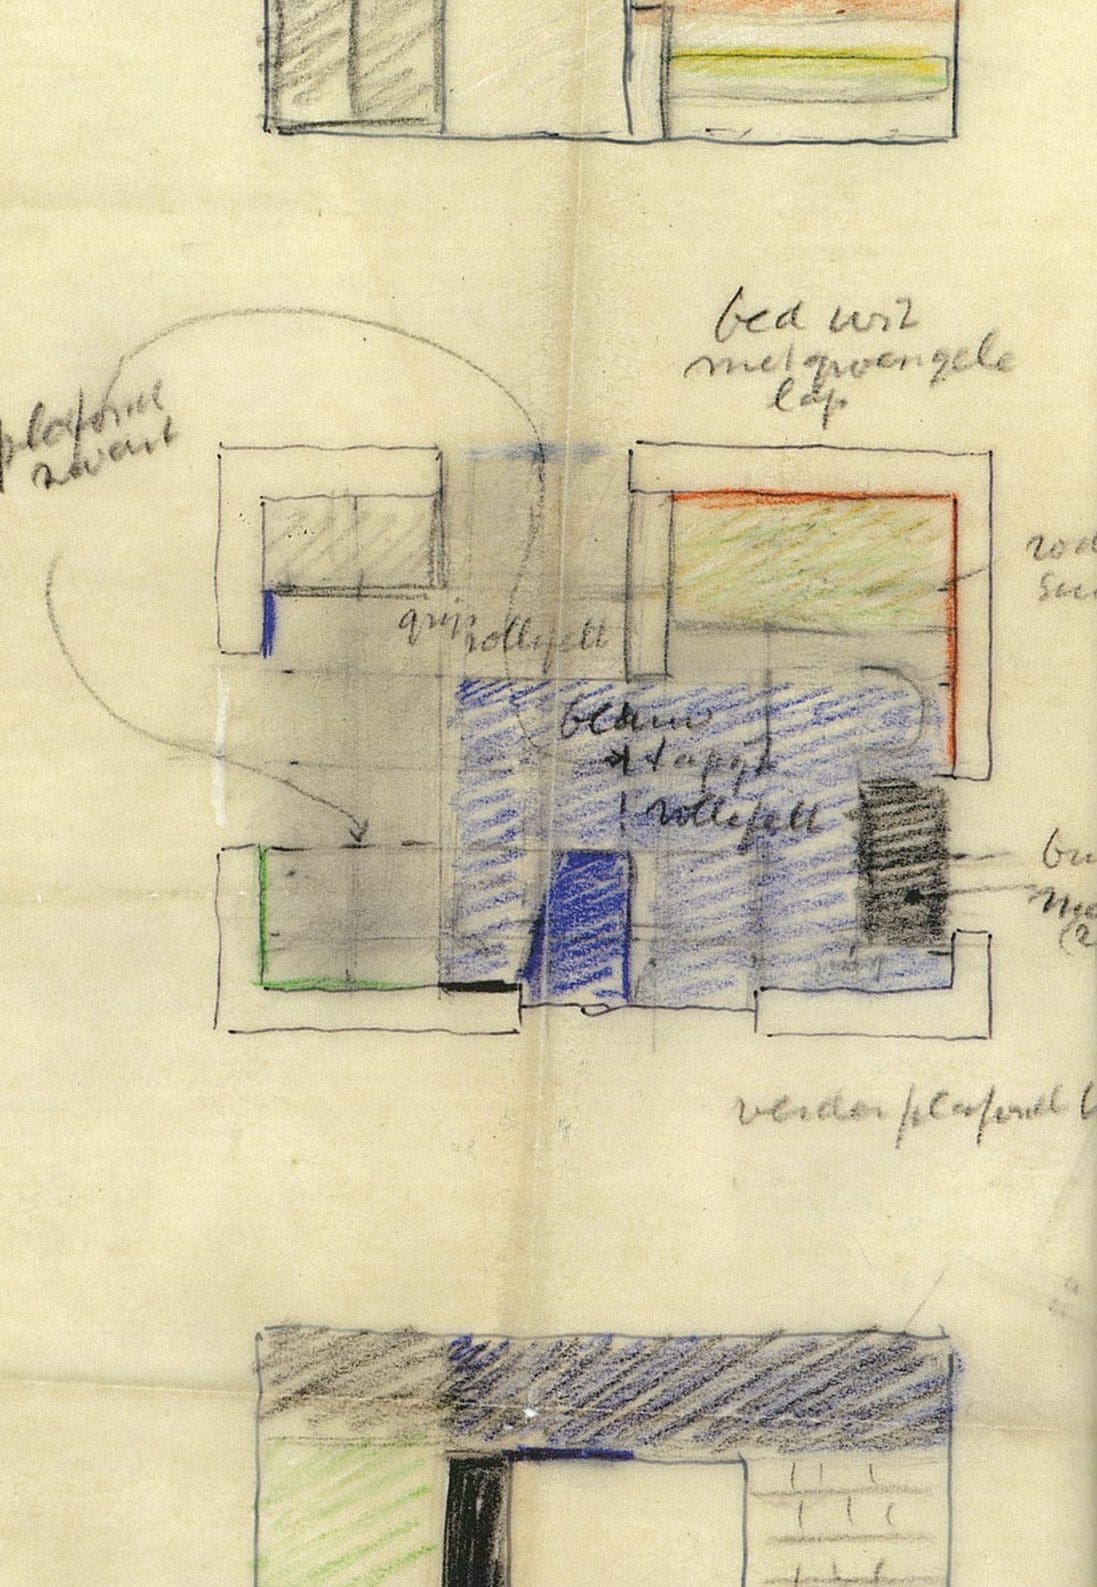 bed wit
met groengele
lap
plafond
zwart
rod
grijs
rollefelt
blauw
tapijt
rollefelt
grijs
verder plafond